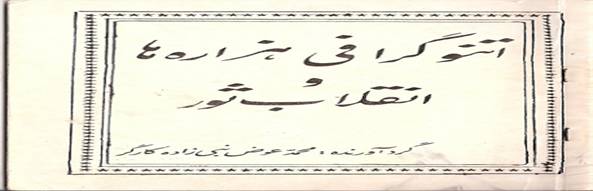 اتنوگرافی هزاره ها
و
انقلاب ثور
گردآورنده: محمد عوض نبی زاده کارگر